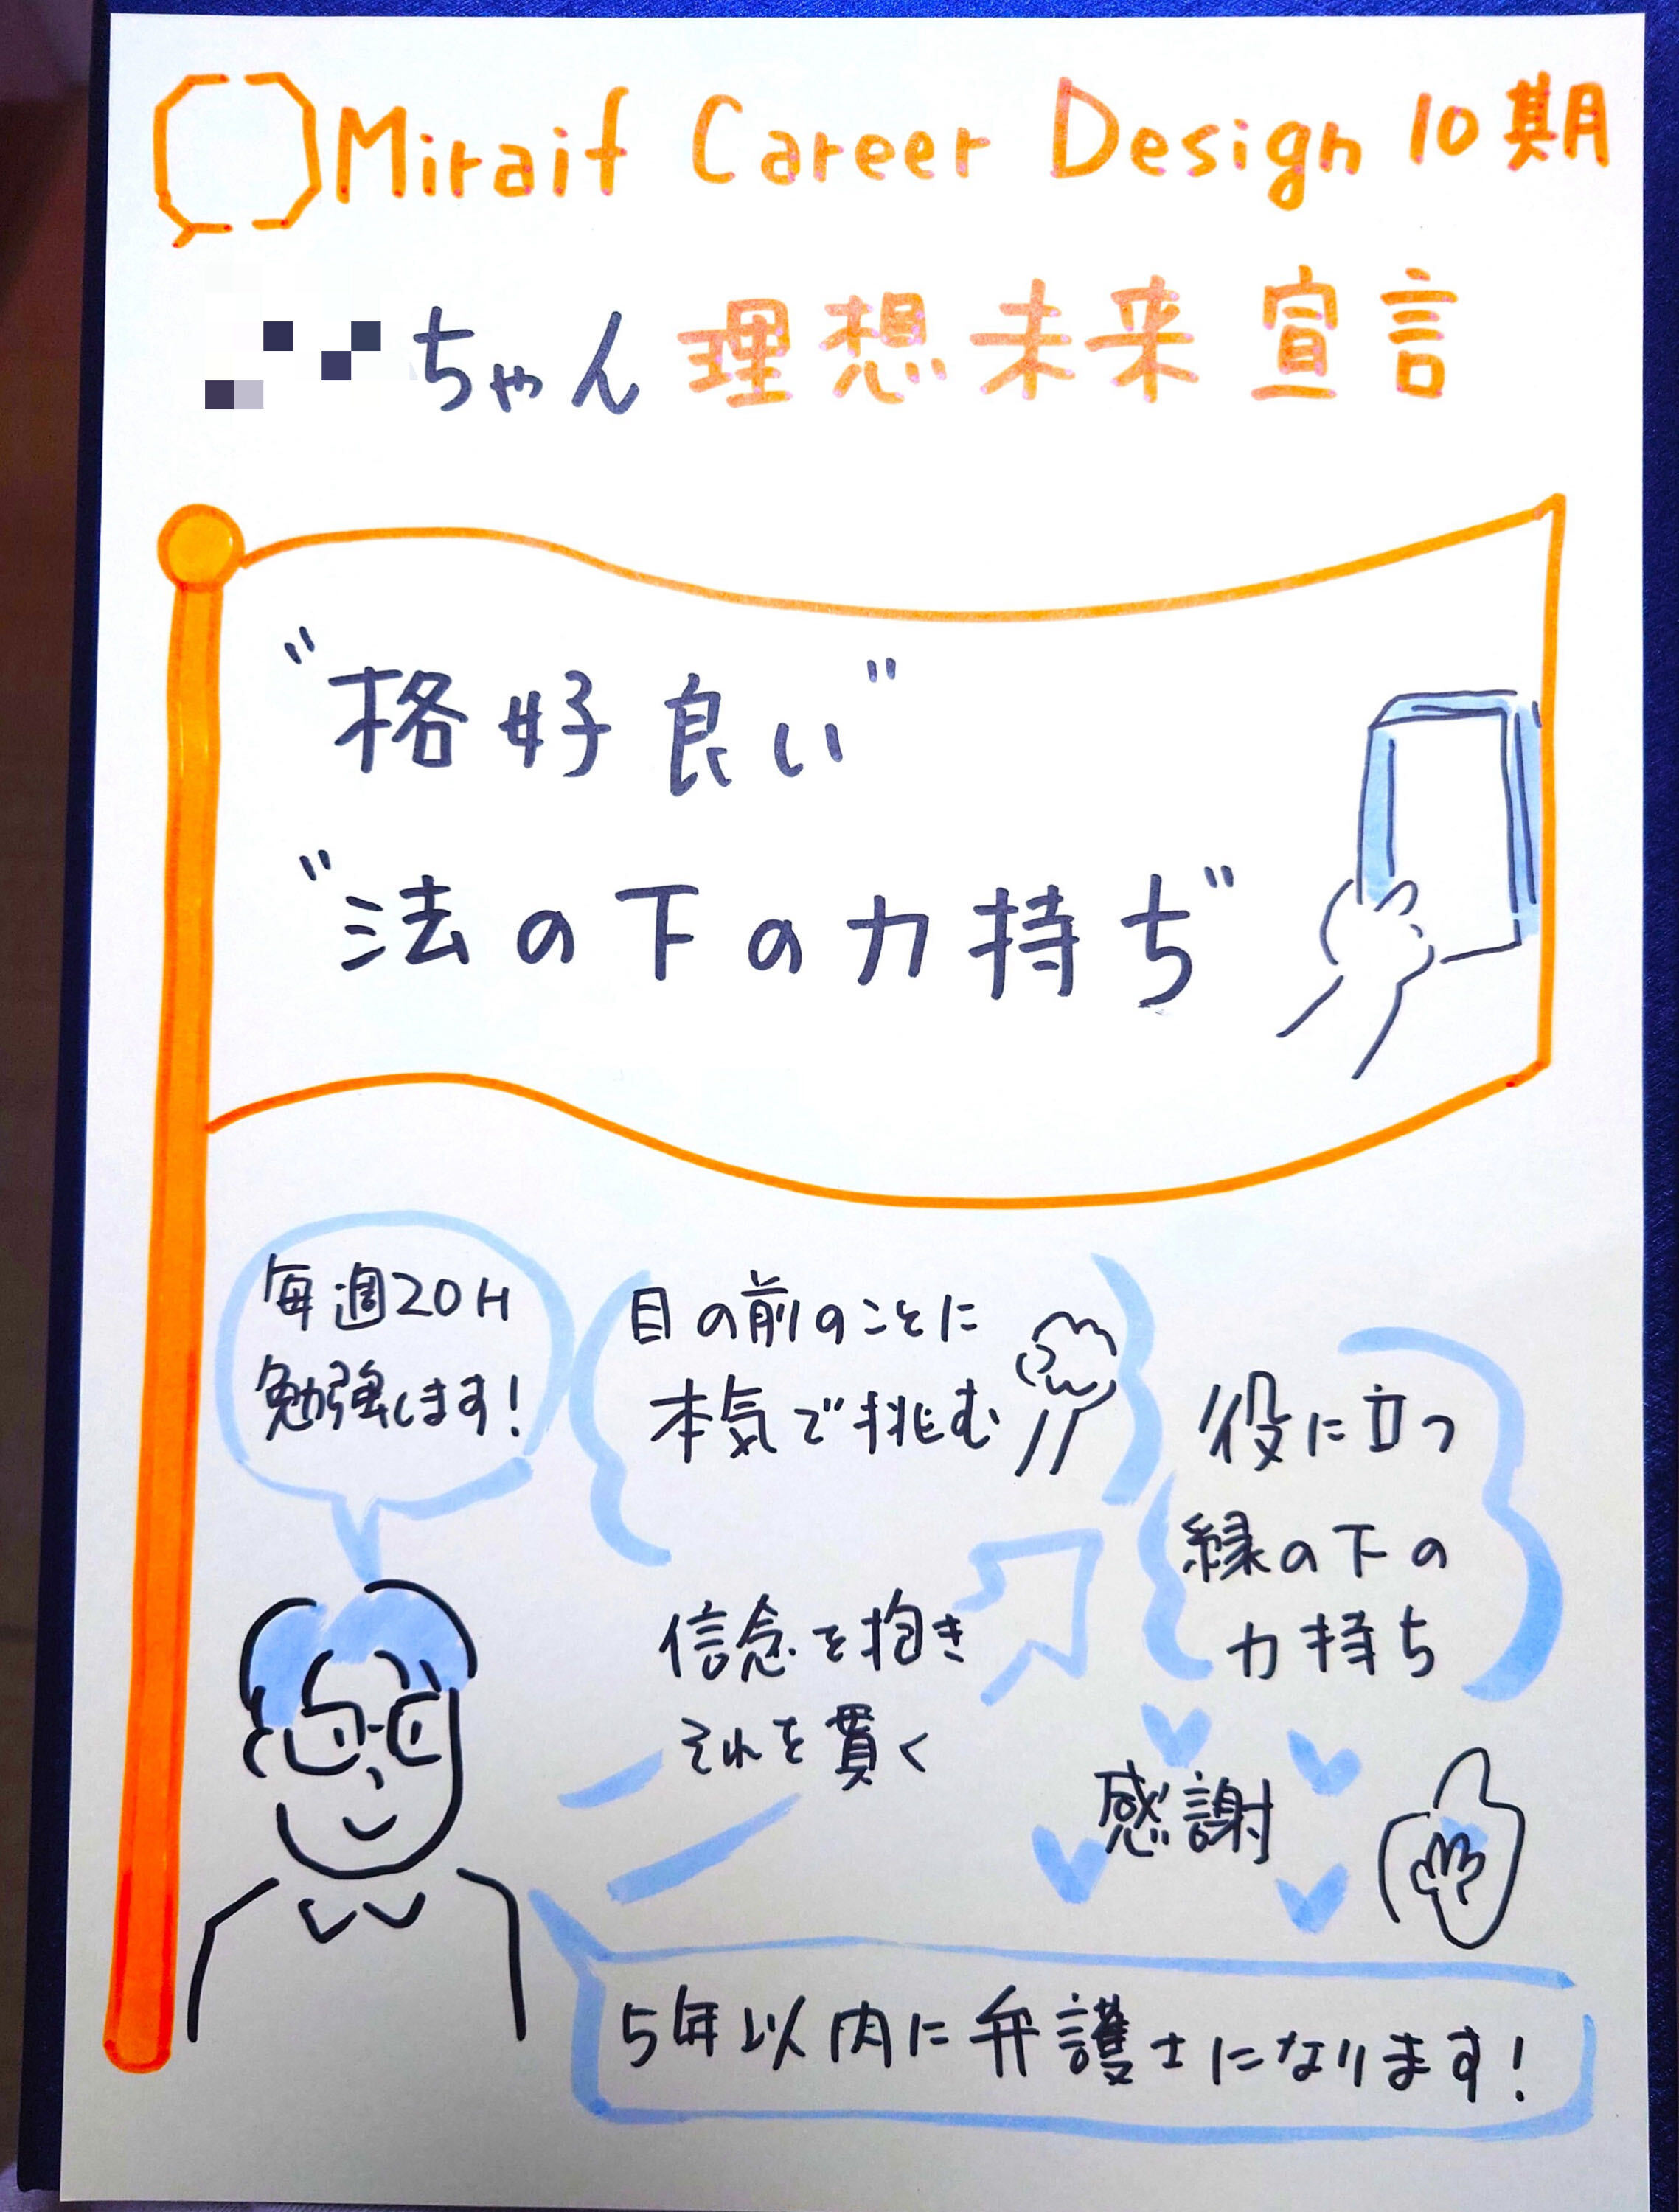 Miraif Career Design 10期
ちゃん 理想未来宣言
"格好良い"
"法の下の力持ち"
毎週20H
勉強します!
目の前のことに
本気で挑む
役に立つ
縁の下の
力持ち
信念を抱き
それを貫く
感謝
5年以内に弁護士になります!